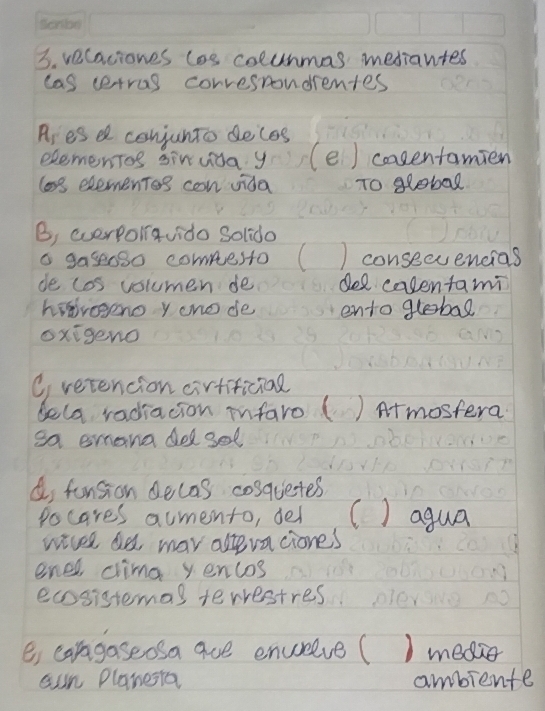 Scribe
3. relaciones los colunmas mediantes
las letras correspondientes
A, es el conjunto de los
elementos sin vida y (e) calentamien
los elementos con vida to global
B, cuerpo liquido solido
o gaseoso compuesto ( ) consecuencias
de los volumen de del calentami
hidrogeno y uno de ento global
oxigeno
C, retencion cirtificial
dela radiacion infaro ( ) Atmosfera
sa emana del sol
d, funsion de las cosquetes
polares aumento, del ( ) agua
nivel del mar alteraciones
enel clima y en los
ecosistemas terrestres
e, capa gaseosa que envuelve ( ) medio
aun planeta ambiente